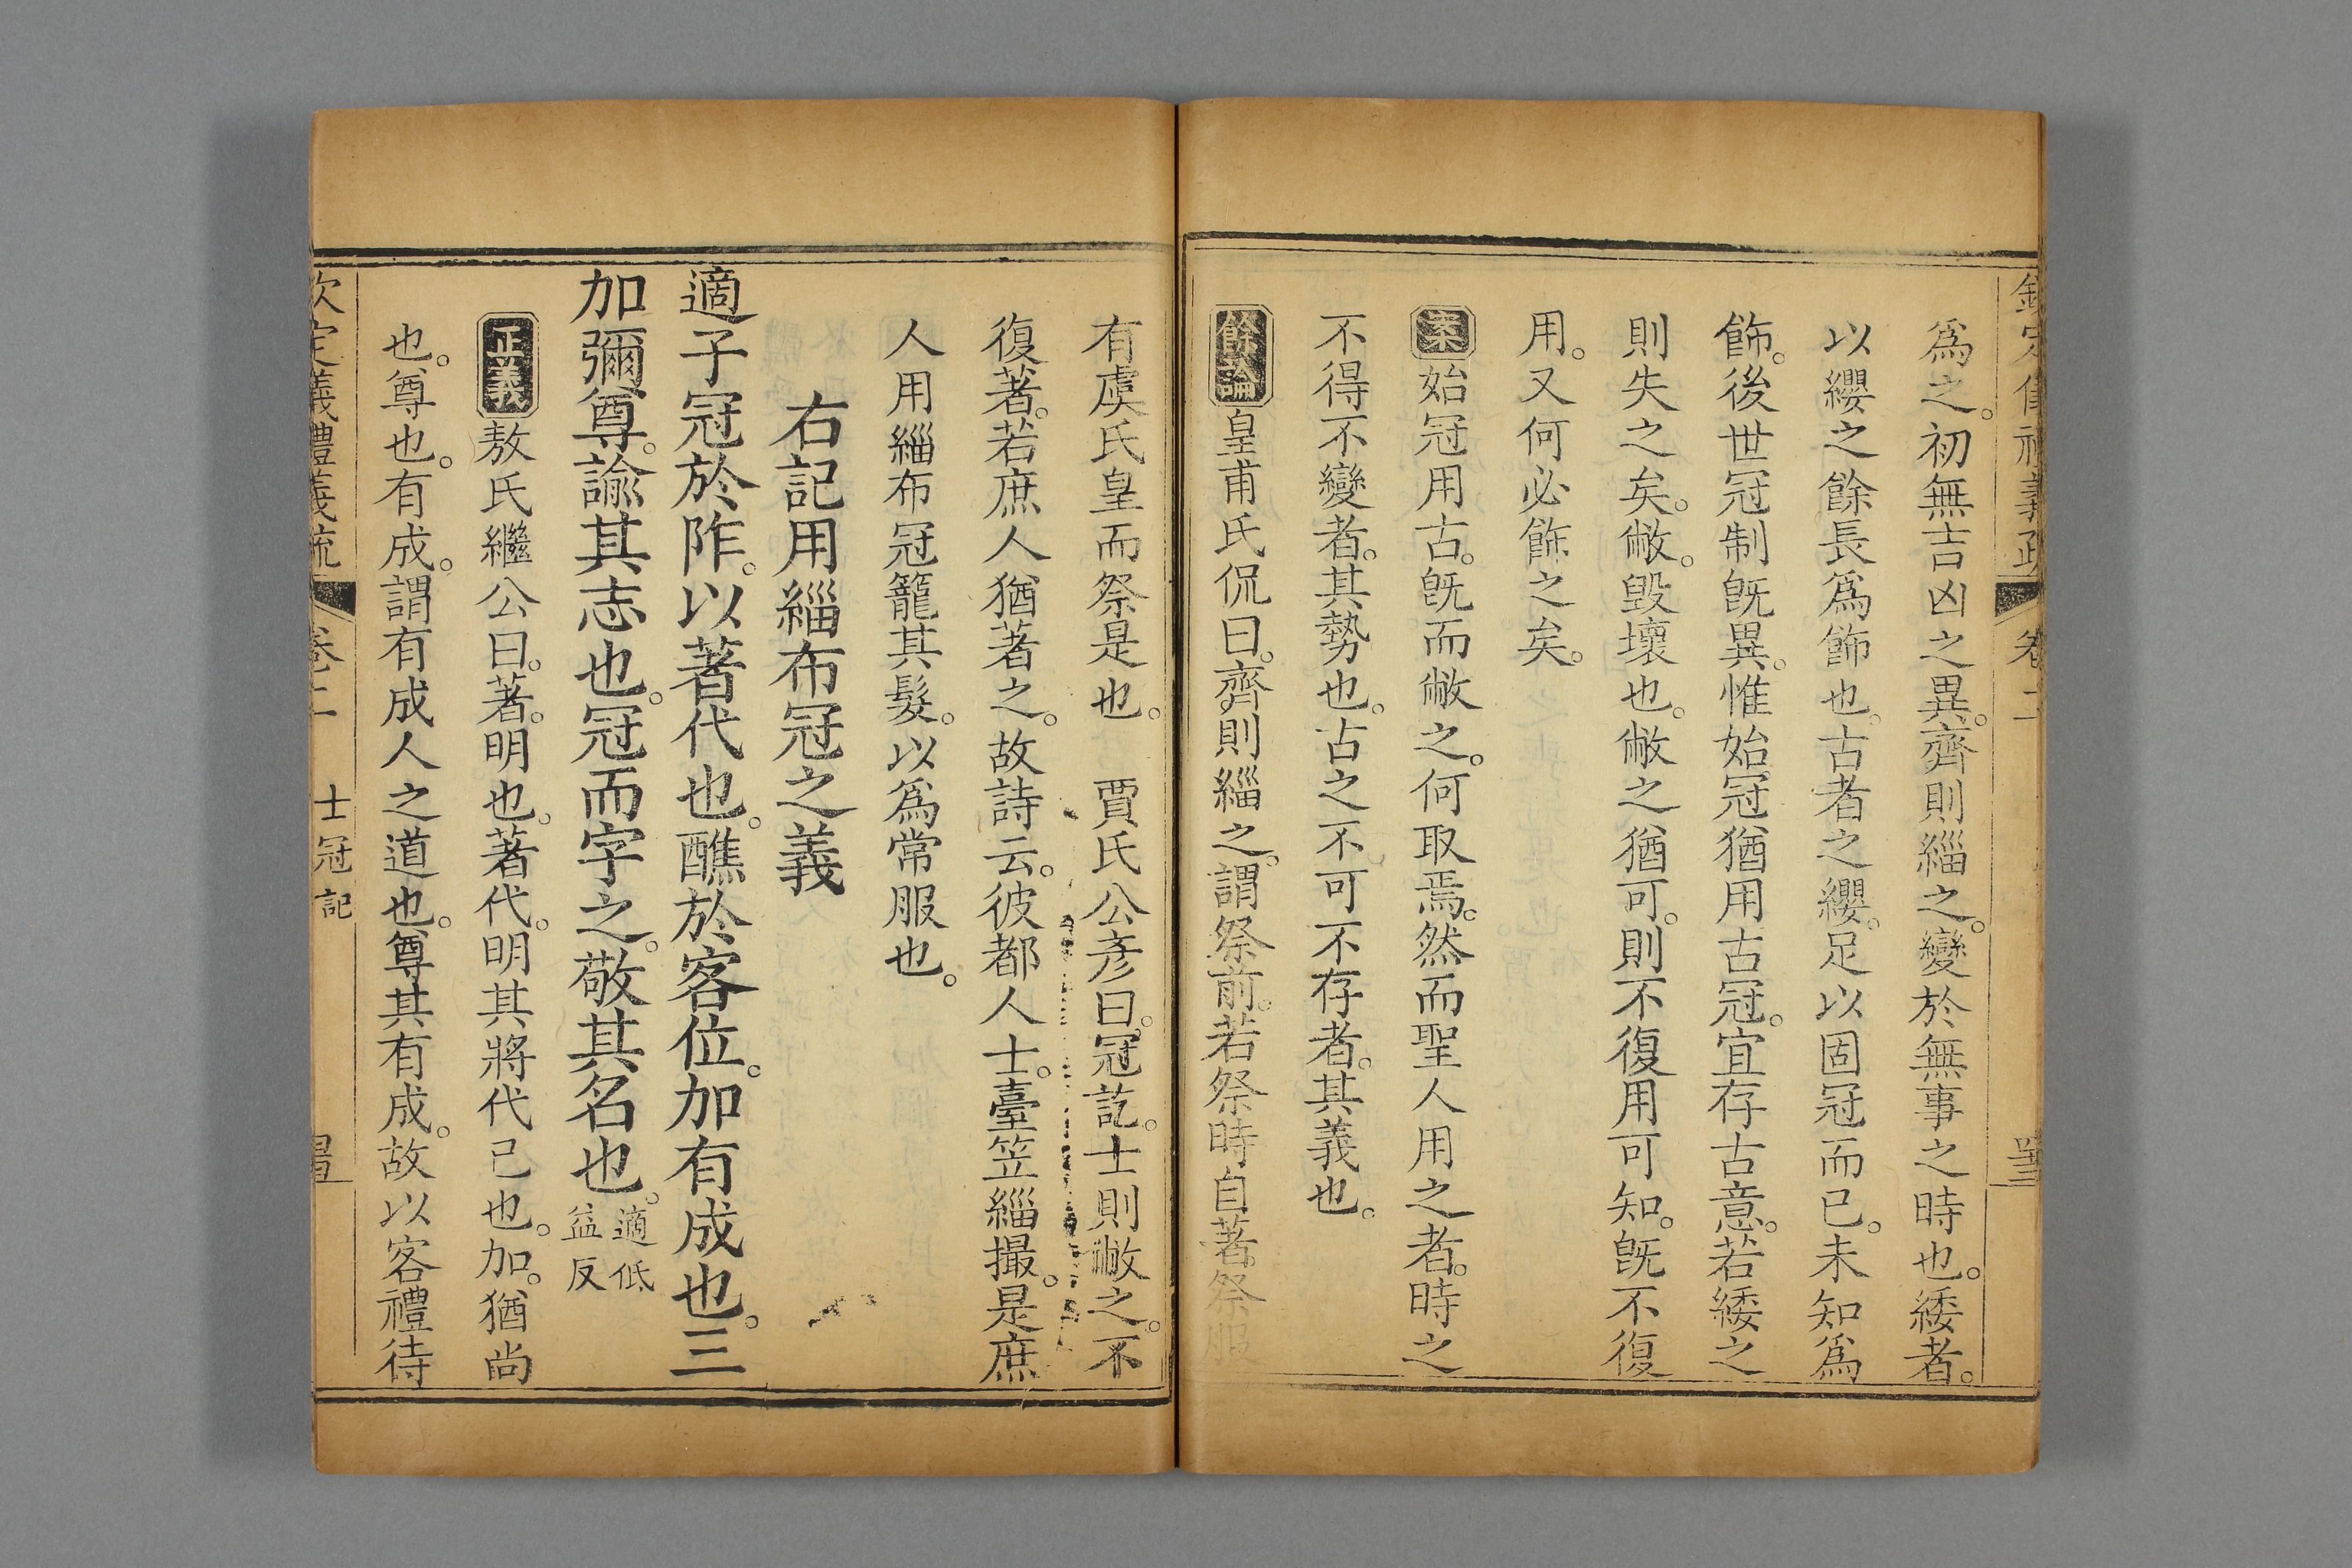 爲之。初無吉凶之異。齊則緇之。變於無事之時也。緌者。
以纓之餘長爲飾也。古者之纓。足以固冠而已。未知爲
飾。後世冠制旣異。惟始冠猶用古冠。宜存古意。若緌之
則失之矣。敝。毀壞也。敝之猶可。則不復用可知。旣不復
用。又何必飾之矣。
案始冠用古。旣而敝之。何取焉。然而聖人用之者。時之
不得不變者。其勢也。古之不可不存者。其義也。
餘論皇甫氏侃曰。齊則緇之。謂祭前。若祭時自著祭服
有虞氏皇而祭是也。　賈氏公彥曰。冠訖。士則敝之。不
復著。若庶人猶著之。故詩云。彼都人士。臺笠緇撮。是庶
人用緇布冠籠其髮。以爲常服也。
右記用緇布冠之義
適子冠於阼。以著代也。醮於客位。加有成也。三
加彌尊。諭其志也。冠而字之。敬其名也。適低益反
正義敖氏繼公曰。著。明也。著代。明其將代已也。加。猶尚
也。尊也。有成。謂有成人之道也。尊其有成。故以客禮待
欽定義禮義疏　卷二　士冠記